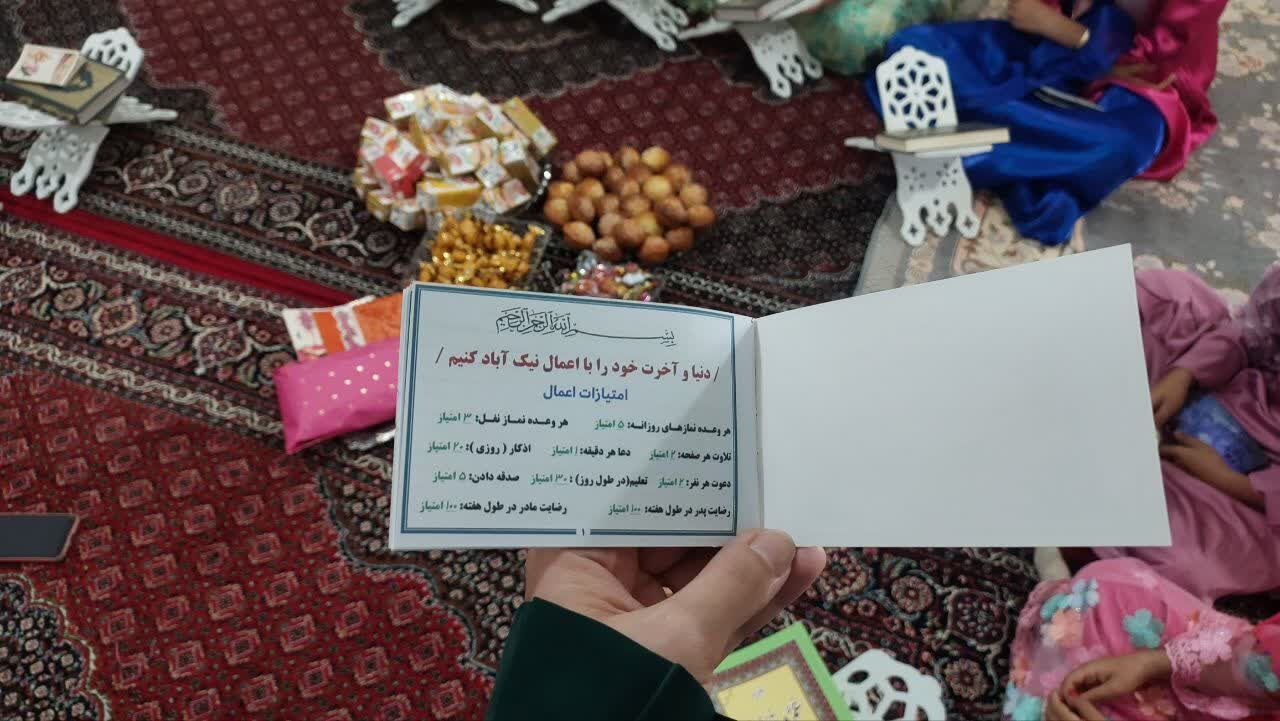 بسم الله الرحمن الرحیم
/ دنیا و آخرت خود را با اعمال نیک آباد کنیم /
امتیازات اعمال
هر وعـده نمازهـای روزانـه: ۵ امتیاز هر وعـده نمـاز نفـل: ۳ امتیاز
تلاوت هر صفحه: ۲ امتیاز دعا هر دقیقه: ۱ امتیاز اذکار ( روزی ): ۲۰ امتیاز
دعوت هر نفر: ۲ امتیاز تعلیم(در طول روز) : ۳۰ امتیاز صدقه دادن: ۵ امتیاز
رضایت پدر در طول هفته: ۱۰۰ امتیاز رضایت مادر در طول هفته: ۱۰۰ امتیاز
۱